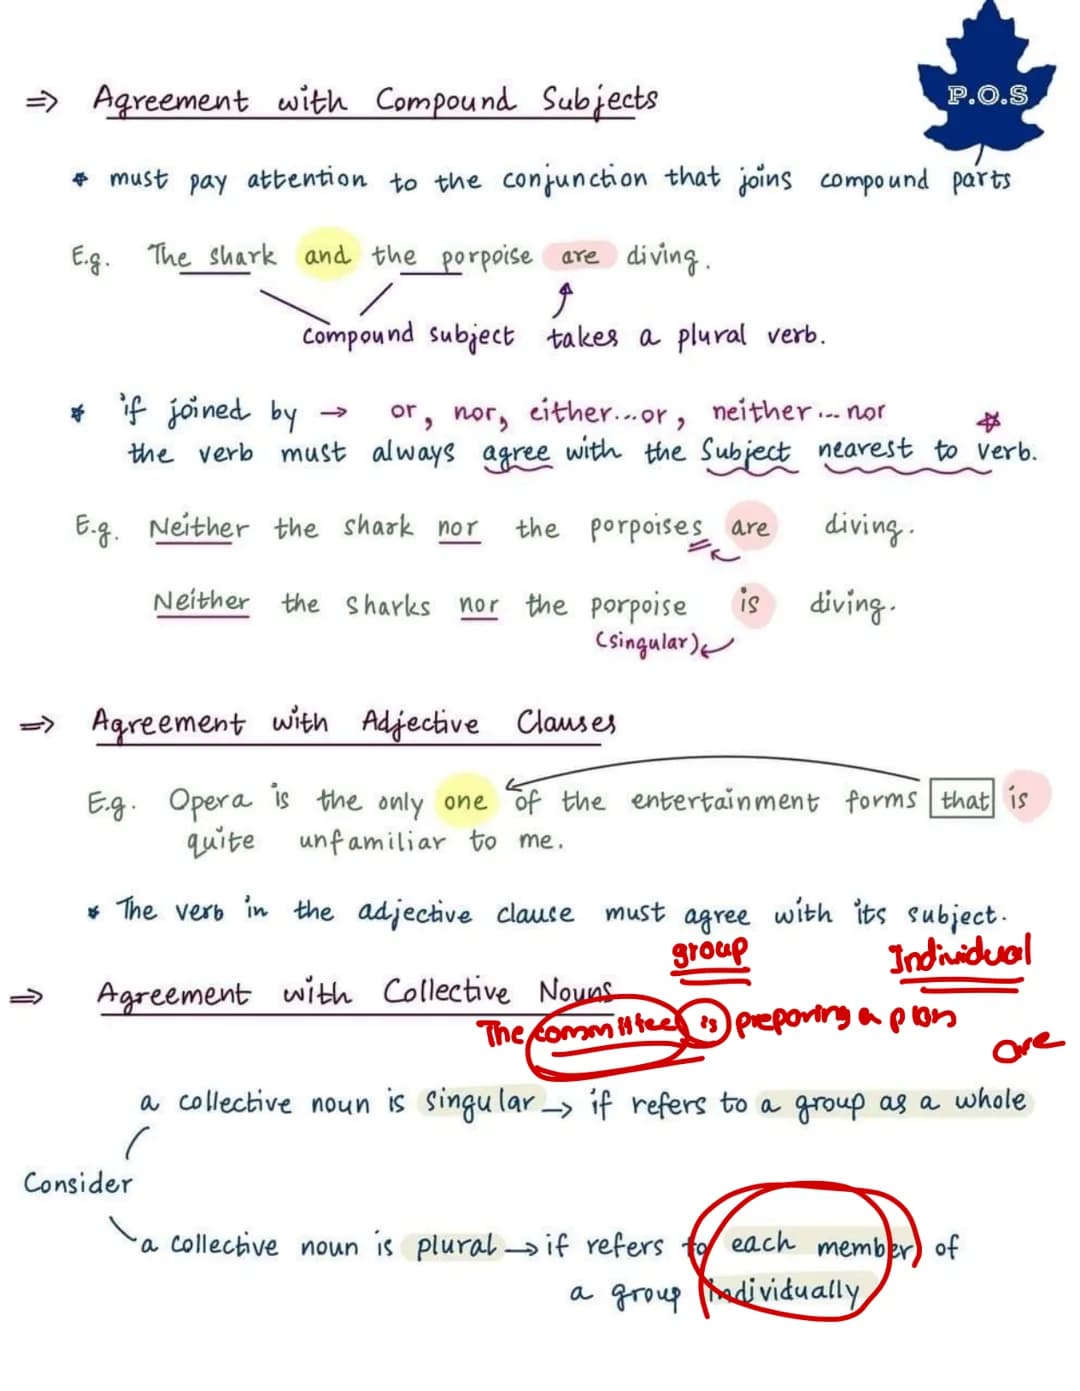 P.O.S
⇒ Agreement with Compound Subjects
* must pay attention to the conjunction that joins compound parts
E.g. The shark and the porpoise are diving.
compound subject takes a plural verb.
* if joined by → or, nor, either...or, neither... nor
the verb must always agree with the Subject nearest to verb.
E.g. Neither the shark nor the porpoises are diving.
Neither the sharks nor the porpoise is diving.
(singular)
⇒ Agreement with Adjective Clauses
E.g. Opera is the only one of the entertainment forms that is
quite unfamiliar to me.
* The verb in the adjective clause must agree with its subject.
group Individual
⇒ Agreement with Collective Nouns
The committee is preparing a plan
are
a collective noun is singular → if refers to a group as a whole
Consider
a collective noun is plural → if refers to each member of
a group individually